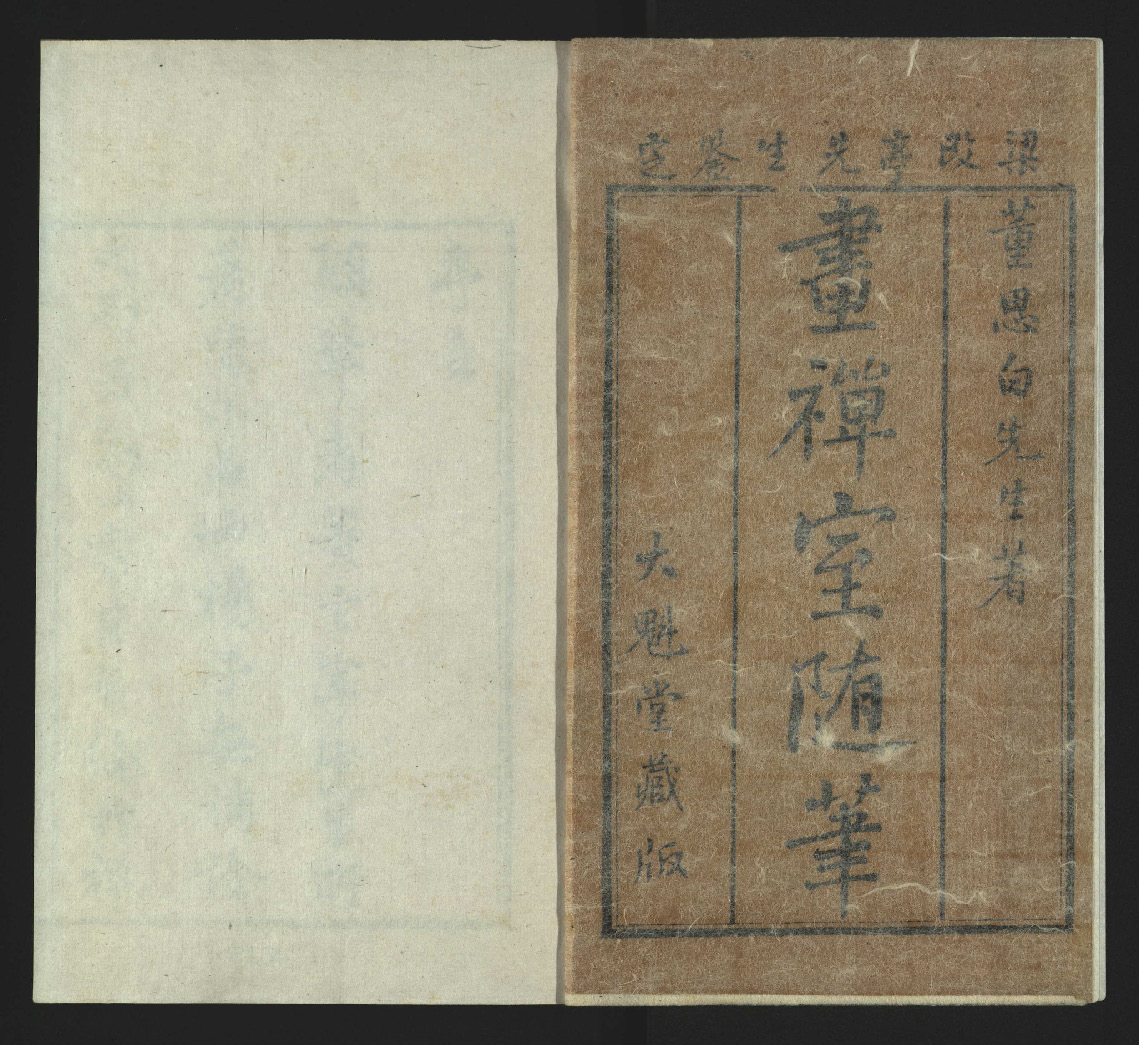 梁改亭先生鉴定
董思白先生著
畫禪室随筆
大魁堂藏版